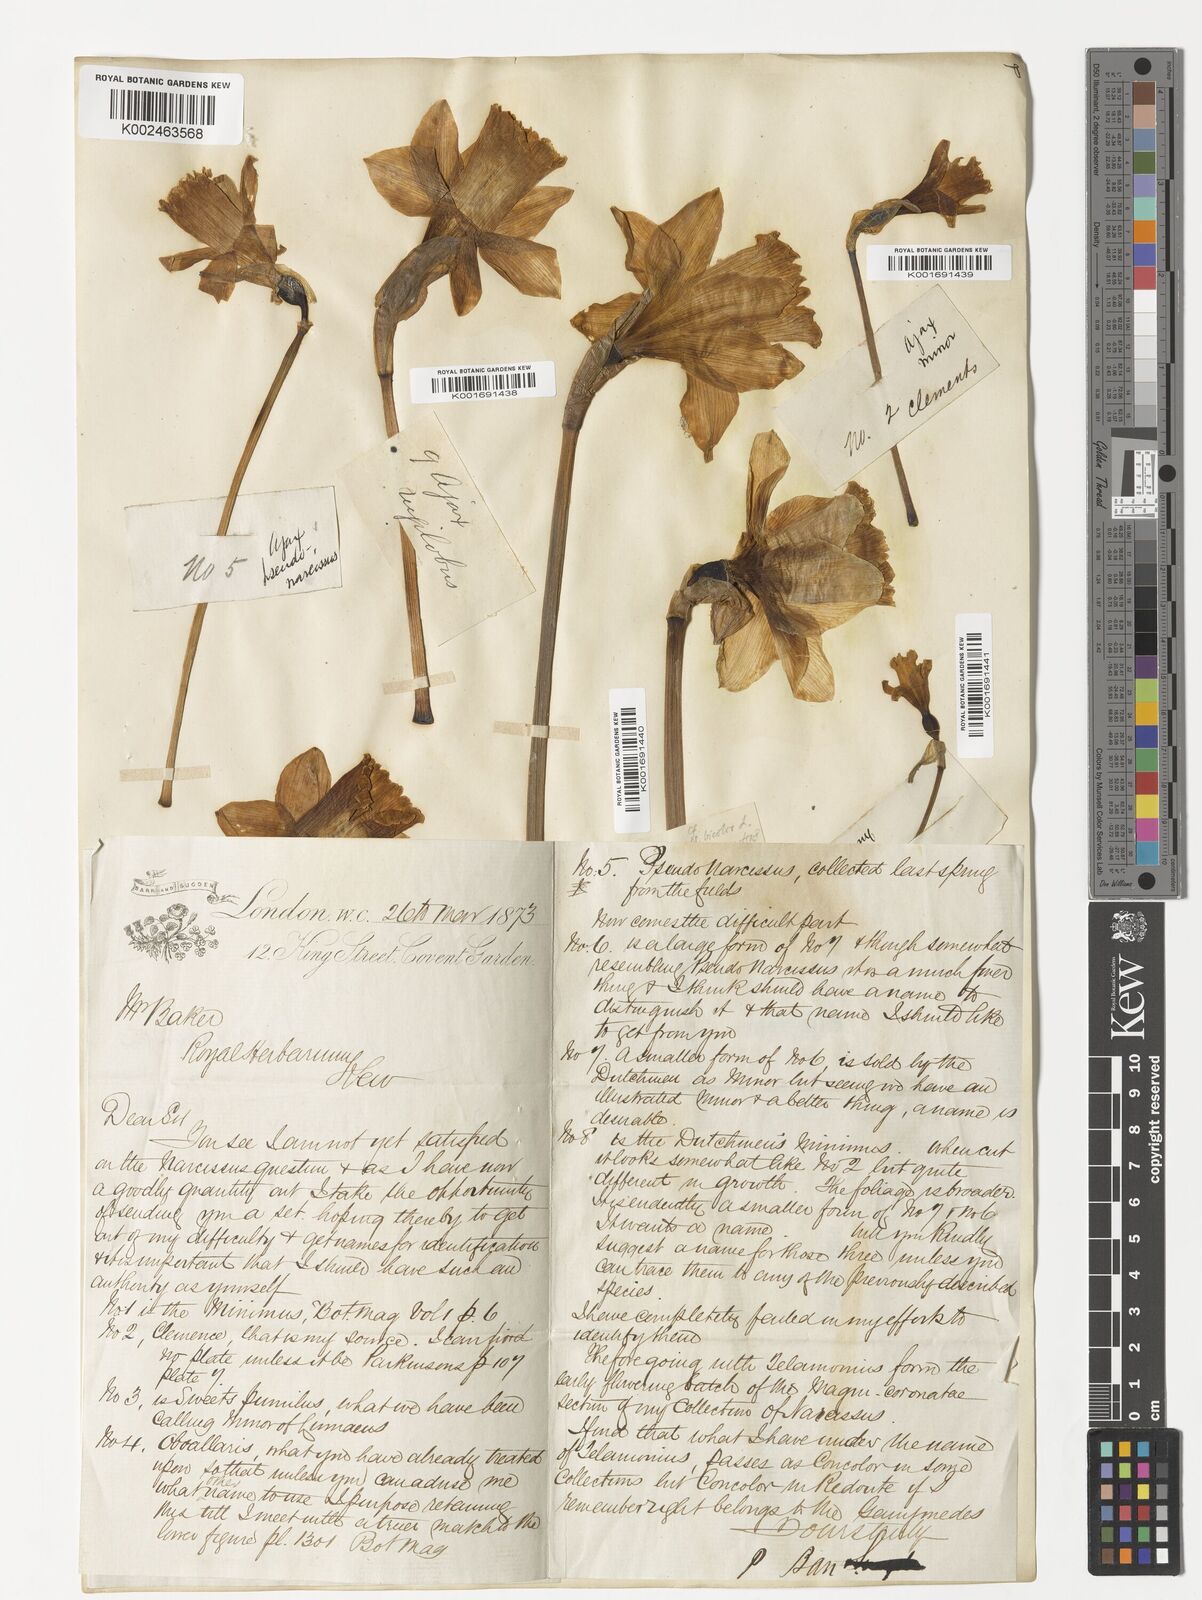 ROYAL BOTANIC GARDENS KEW
K002463568
ROYAL BOTANIC GARDENS KEW
K001691438
ROYAL BOTANIC GARDENS KEW
K001691439
ROYAL BOTANIC GARDENS KEW
K001691440
ROYAL BOTANIC GARDENS KEW
K001691441
No 5
Ajax
pseudo-
narcissus
9 Ajax
rugilobus
Ajax
minor
No. 2 Clements
bicolor L.
BARR AND SUGDEN
London. W.C. 26th Mar 1873
12, King Street, Covent Garden.
Mr Baker
Royal Herbarium
Kew
Dear Sir
You see I am not yet satisfied
on the Narcissus question & as I have now
a goodly quantity out I take the opportunity
of sending you a set. hoping thereby to get
out of my difficulty & get names for identification
& it is important that I should have such an
authority as yourself
No 1 is the Minimus, Bot. Mag Vol 1 p. 6
No 2, Clemence, that is my source. I can find
no plate unless it be Parkinsons p 107
plate 7.
No 3, is Sweets Pumilus, what we have been
calling Minor of Linnaeus
No 4. Oboallaris, what you have already treated
upon so that unless you can advise me
what other name to use I purpose retaining
this till I meet with a truer match to the
lower figure pl. 1301 Bot Mag
No. 5. Pseudo Narcissus, collected last spring
from the fields
Now comes the difficult part
No. 6. is a large form of No 7 & though somewhat
resembling Pseudo Narcissus it is a much finer
thing & I think should have a name to
distinguish it & that name I should like
to get from you
No 7. A smaller form of No 6, is sold by the
Dutchmen as Minor but seeing we have an
illustrated Minor & a better thing, a name is
desirable.
No 8 is the Dutchmen's Minimus. When cut
it looks somewhat like No 2 but quite
different in growth. The foliage is broader.
It is evidently a smaller form of No 7 & No 6
It wants a name. Will you kindly
suggest a name for those three unless you
can trace them to any of the previously described
species.
I have completely failed in my efforts to
identify them
The foregoing with Telamonius form the
early flowering batch of the Magni-coronatae
section of my Collection of Narcissus.
I find that what I have under the name
of Telamonius, passes as Concolor in some
Collections but Concolor in Redoute if I
remember right belongs to the Ganymedes
Yours truly
P Barr
D50 Illuminant, 2 degree observer
Density
Golden Thread
Colors by Munsell Color Services Lab
Don Williams
inches
centimetres
Royal Botanic Gardens
Kew
copyright reserved
0 1 2 3 4 5 6 7 8 9 10 cm